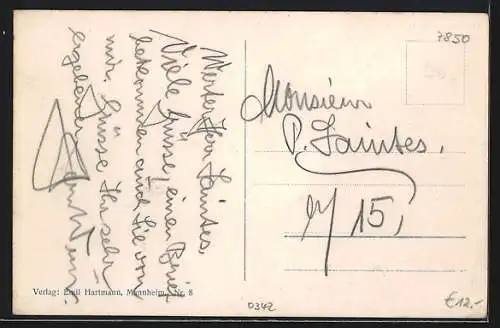 Werter Herr Saintes,
Viele Grüsse, einen Brief
bekommen auch Sie von
mir. Grüsse Ihr sehr
ergebener
Monsieur
P. Saintes.
M/15,
7850
Verlag: Emil Hartmann, Mannheim. Nr. 8
0342
€12.-